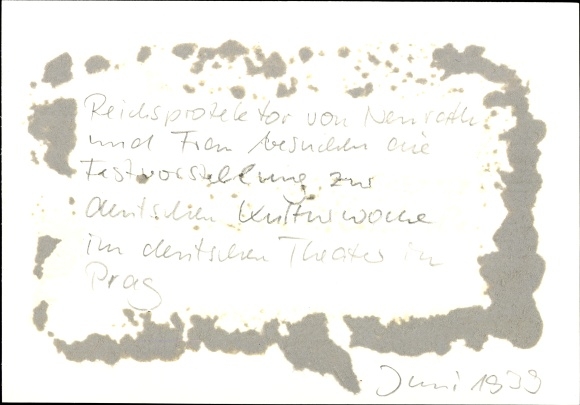 Reichsprotektor von Neurath
und Frau besuchen die
Festvorstellung zur
deutschen Kulturwoche
im deutschen Theater in
Prag
Juni 1939